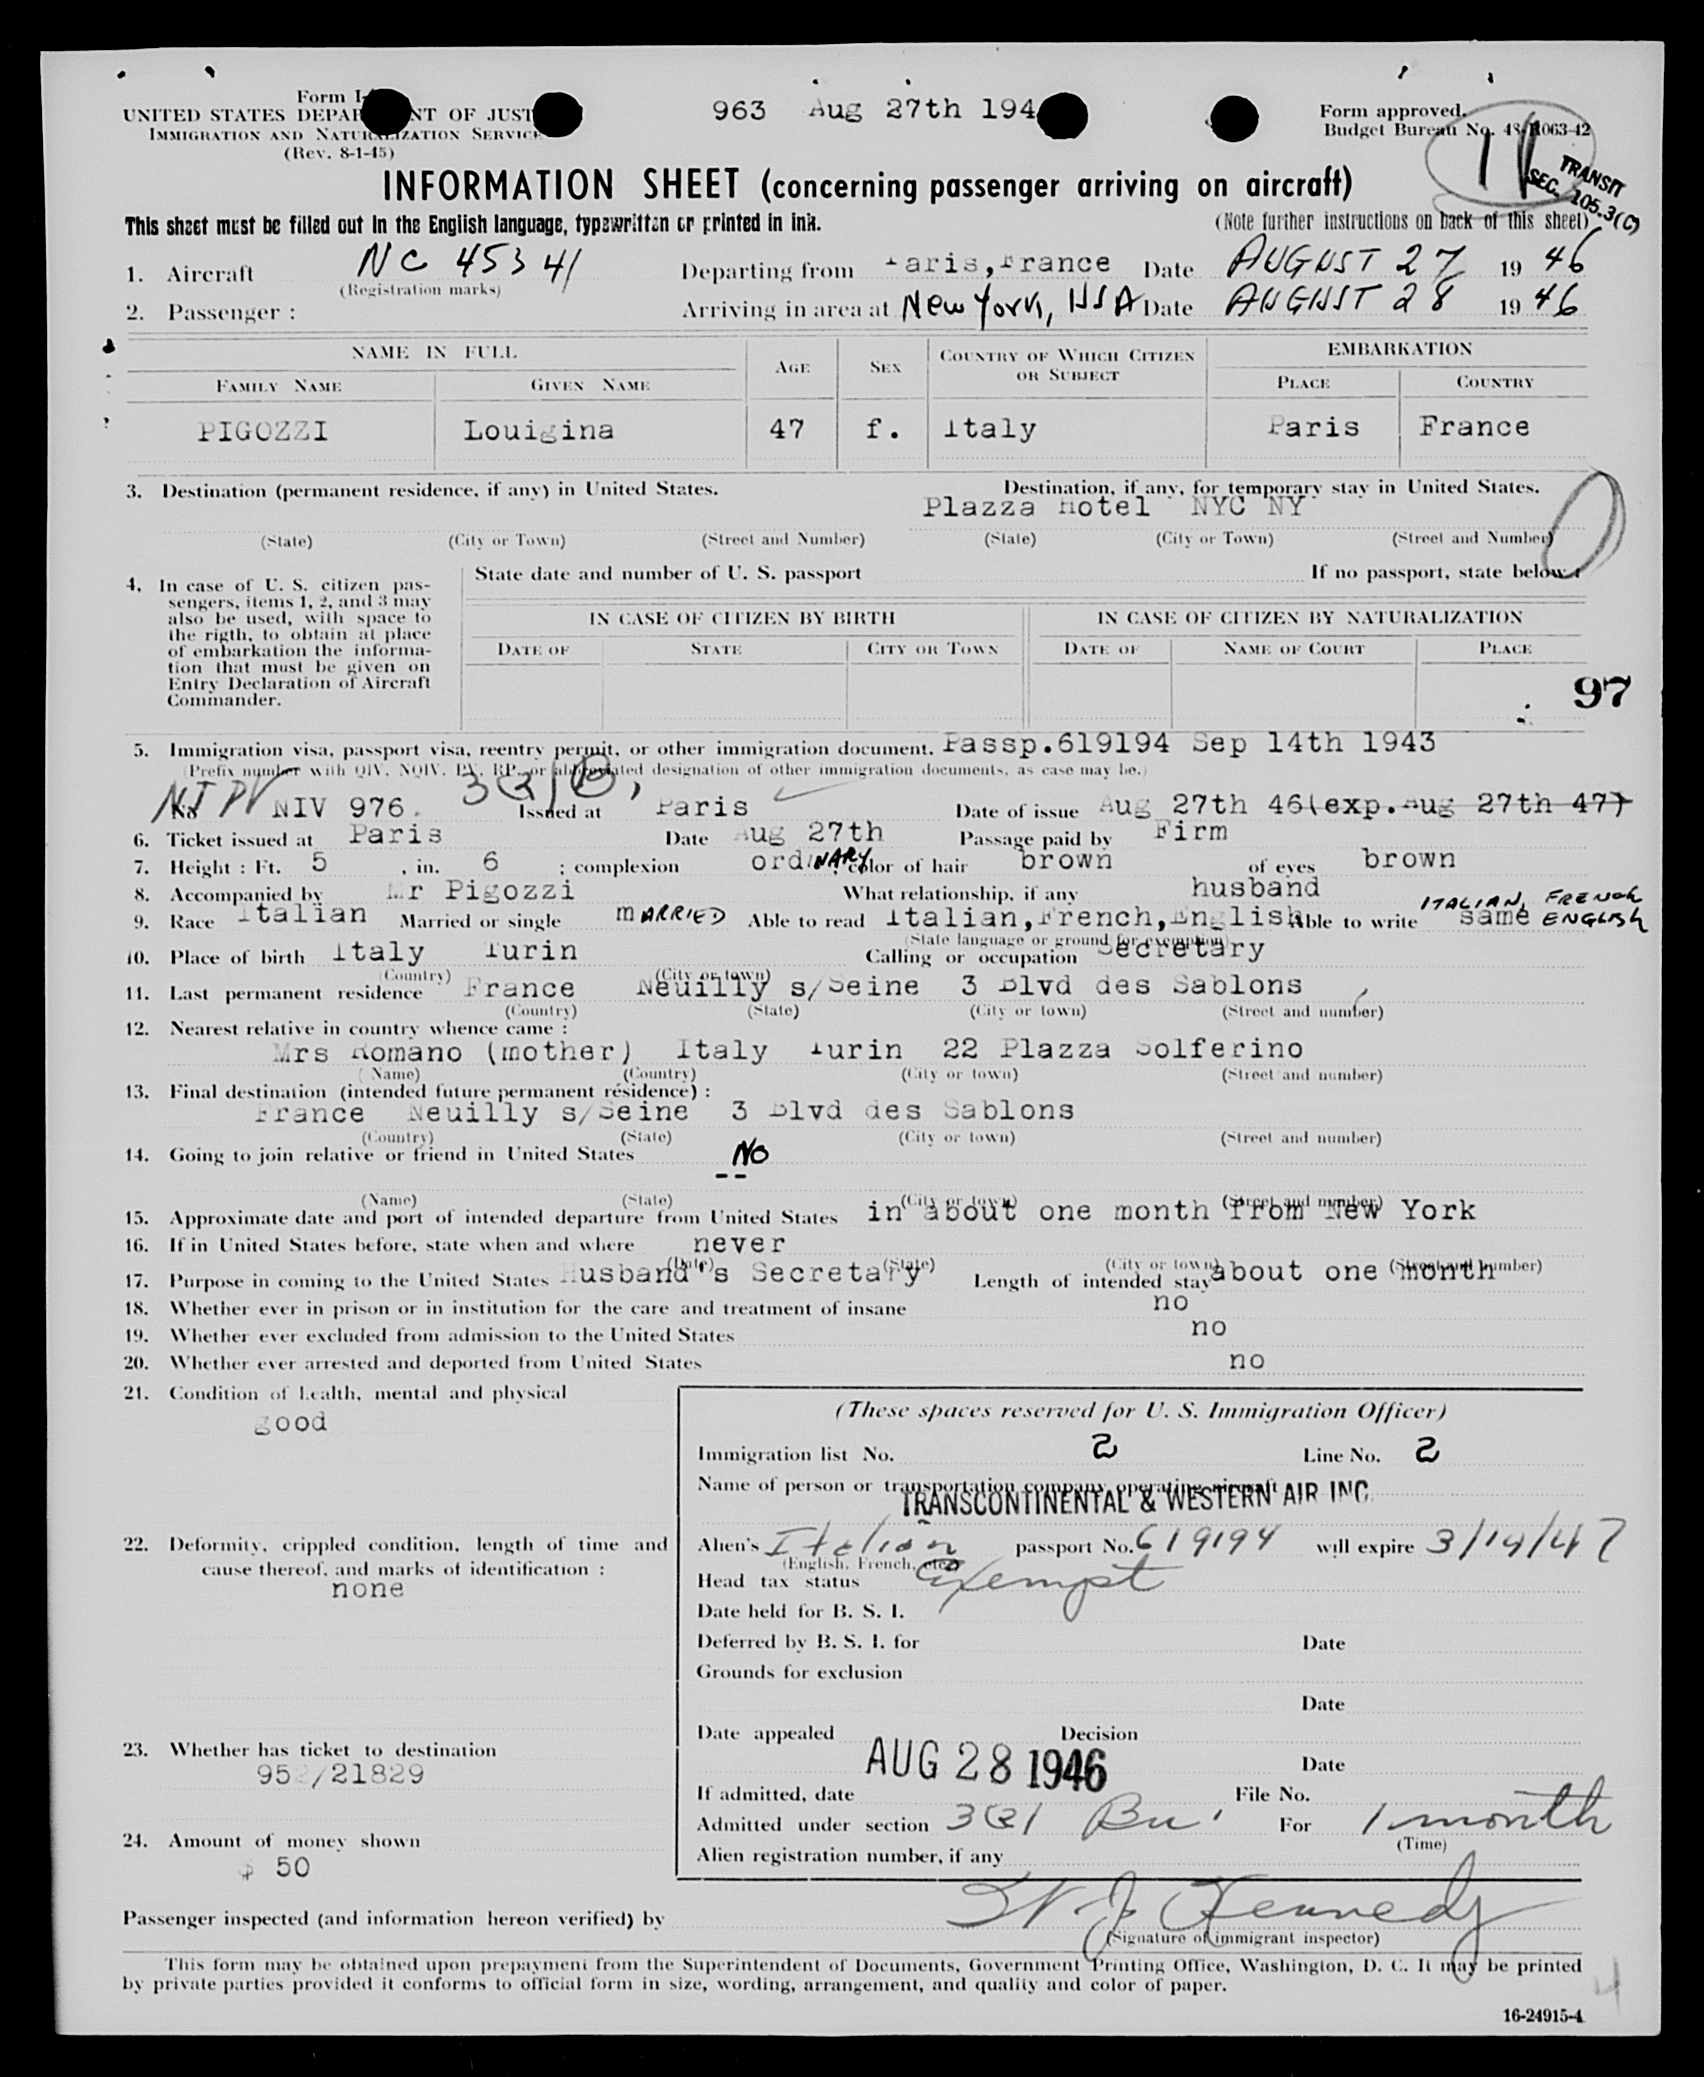 Form I-
963 Aug 27th 194
Form approved.
UNITED STATES DEPA NT OF JUST
Budget Bureau No. 43-R063-42
IMMIGRATION AND NATURALIZATION SERVICE
(Rev. 8-1-45)
TRANSIT
SEC. 105.3(C)
INFORMATION SHEET (concerning passenger arriving on aircraft)
This sheet must be filled out in the English language, typewritten or printed in ink.
(Note further instructions on back of this sheet)
1. Aircraft NC 45341 Departing from Paris,France Date AUGUST 27 19 46
(Registration marks)
2. Passenger : Arriving in area at New York, USA Date AUGUST 28 19 46
NAME IN FULL AGE SEX COUNTRY OF WHICH CITIZEN OR SUBJECT EMBARKATION
FAMILY NAME GIVEN NAME PLACE COUNTRY
PIGOZZI Louigina 47 f. Italy Paris France
3. Destination (permanent residence, if any) in United States. Destination, if any, for temporary stay in United States.
Plazza Hotel NYC NY
(State) (City or Town) (Street and Number) (State) (City or Town) (Street and Number)
4. In case of U. S. citizen pas-
sengers, items 1, 2, and 3 may
also be used, with space to
the rigth, to obtain at place
of embarkation the informa-
tion that must be given on
Entry Declaration of Aircraft
Commander.
State date and number of U. S. passport If no passport, state below :
IN CASE OF CITIZEN BY BIRTH IN CASE OF CITIZEN BY NATURALIZATION
DATE OF STATE CITY OR TOWN DATE OF NAME OF COURT PLACE
97
5. Immigration visa, passport visa, reentry permit, or other immigration document. Passp.619194 Sep 14th 1943
(Prefix number with QIV, NQIV, PV, RP, or abbreviated designation of other immigration documents, as case may be.)
No NIV 976. Issued at Paris Date of issue Aug 27th 46(exp.Aug 27th 47)
6. Ticket issued at Paris Date Aug 27th Passage paid by Firm
7. Height : Ft. 5 , in. 6 ; complexion ordiNARY ; color of hair brown of eyes brown
8. Accompanied by Mr Pigozzi What relationship, if any husband
ITALIAN, FRENCH
9. Race Italian Married or single mARRIED Able to read Italian,French,English Able to write same ENGLISH
(State language or ground for exemption)
10. Place of birth Italy Turin Calling or occupation Secretary
(Country) (City or town)
11. Last permanent residence France Neuilly s/Seine 3 Blvd des Sablons
(Country) (State) (City or town) (Street and number)
12. Nearest relative in country whence came :
Mrs Romano (mother) Italy Turin 22 Plazza Solferino
(Name) (Country) (City or town) (Street and number)
13. Final destination (intended future permanent résidence) :
France Neuilly s/Seine 3 Blvd des Sablons
(Country) (State) (City or town) (Street and number)
14. Going to join relative or friend in United States No
--
(Name) (State) (City or town) (Street and number)
15. Approximate date and port of intended departure from United States in about one month from New York
16. If in United States before, state when and where never
(Date) (State) (City or town) (Street and number)
17. Purpose in coming to the United States Husband's Secretary Length of intended stay about one month
18. Whether ever in prison or in institution for the care and treatment of insane no
19. Whether ever excluded from admission to the United States no
20. Whether ever arrested and deported from United States no
21. Condition of health, mental and physical
good
22. Deformity, crippled condition, length of time and
cause thereof, and marks of identification :
none
23. Whether has ticket to destination
95 /21829
24. Amount of money shown
$ 50
(These spaces reserved for U. S. Immigration Officer)
Immigration list No. 2 Line No. 2
Name of person or transportation company operating aircraft
TRANSCONTINENTAL & WESTERN AIR INC.
Alien's Italian passport No. 619194 will expire 3/14/47
(English, French, etc.)
Head tax status Exempt
Date held for B. S. I.
Deferred by B. S. I. for Date
Grounds for exclusion
Date
Date appealed Decision
AUG 28 1946 Date
If admitted, date File No.
Admitted under section 3(2) Bu. For 1 month
(Time)
Alien registration number, if any
Passenger inspected (and information hereon verified) by J. Kennedy
(Signature of immigrant inspector)
This form may be obtained upon prepayment from the Superintendent of Documents, Government Printing Office, Washington, D. C. It may be printed
by private parties provided it conforms to official form in size, wording, arrangement, and quality and color of paper.
4
16-24915-4